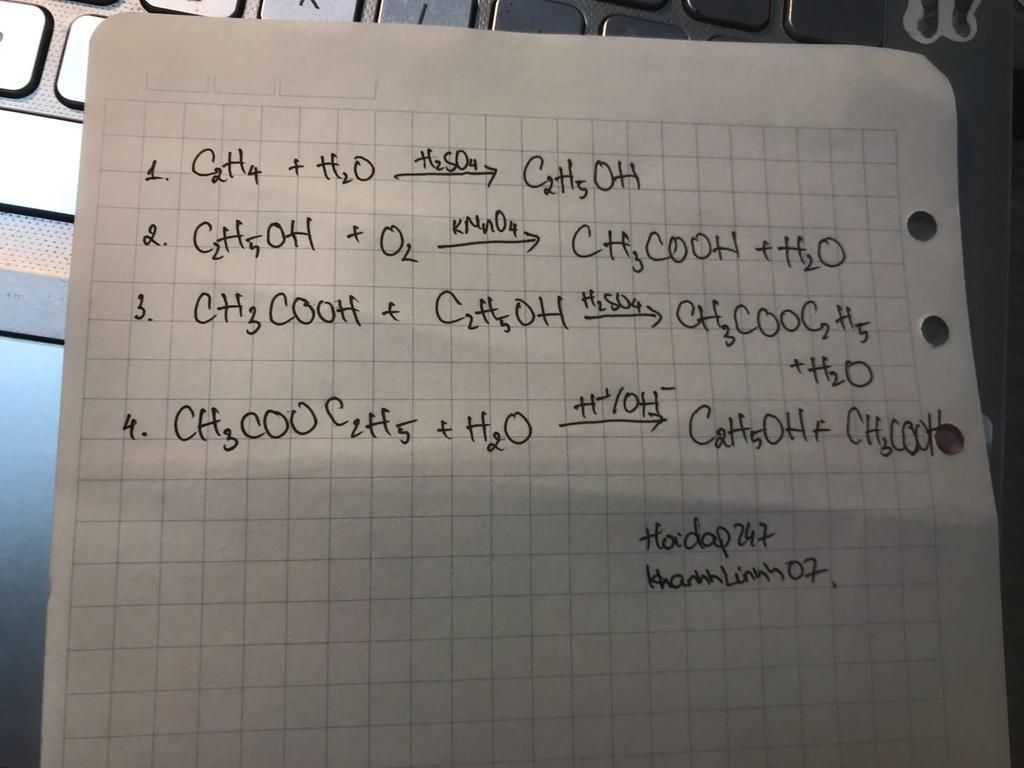 1. C₂H₄ + H₂O H₂SO₄→ C₂H₅OH
2. C₂H₅OH + O₂ KMnO₄→ CH₃COOH + H₂O
3. CH₃COOH + C₂H₅OH H₂SO₄→ CH₃COOC₂H₅
+ H₂O
4. CH₃COOC₂H₅ + H₂O H⁺/OH⁻→ C₂H₅OH + CH₃COOH
Hoidap247
khanhLinhh07.